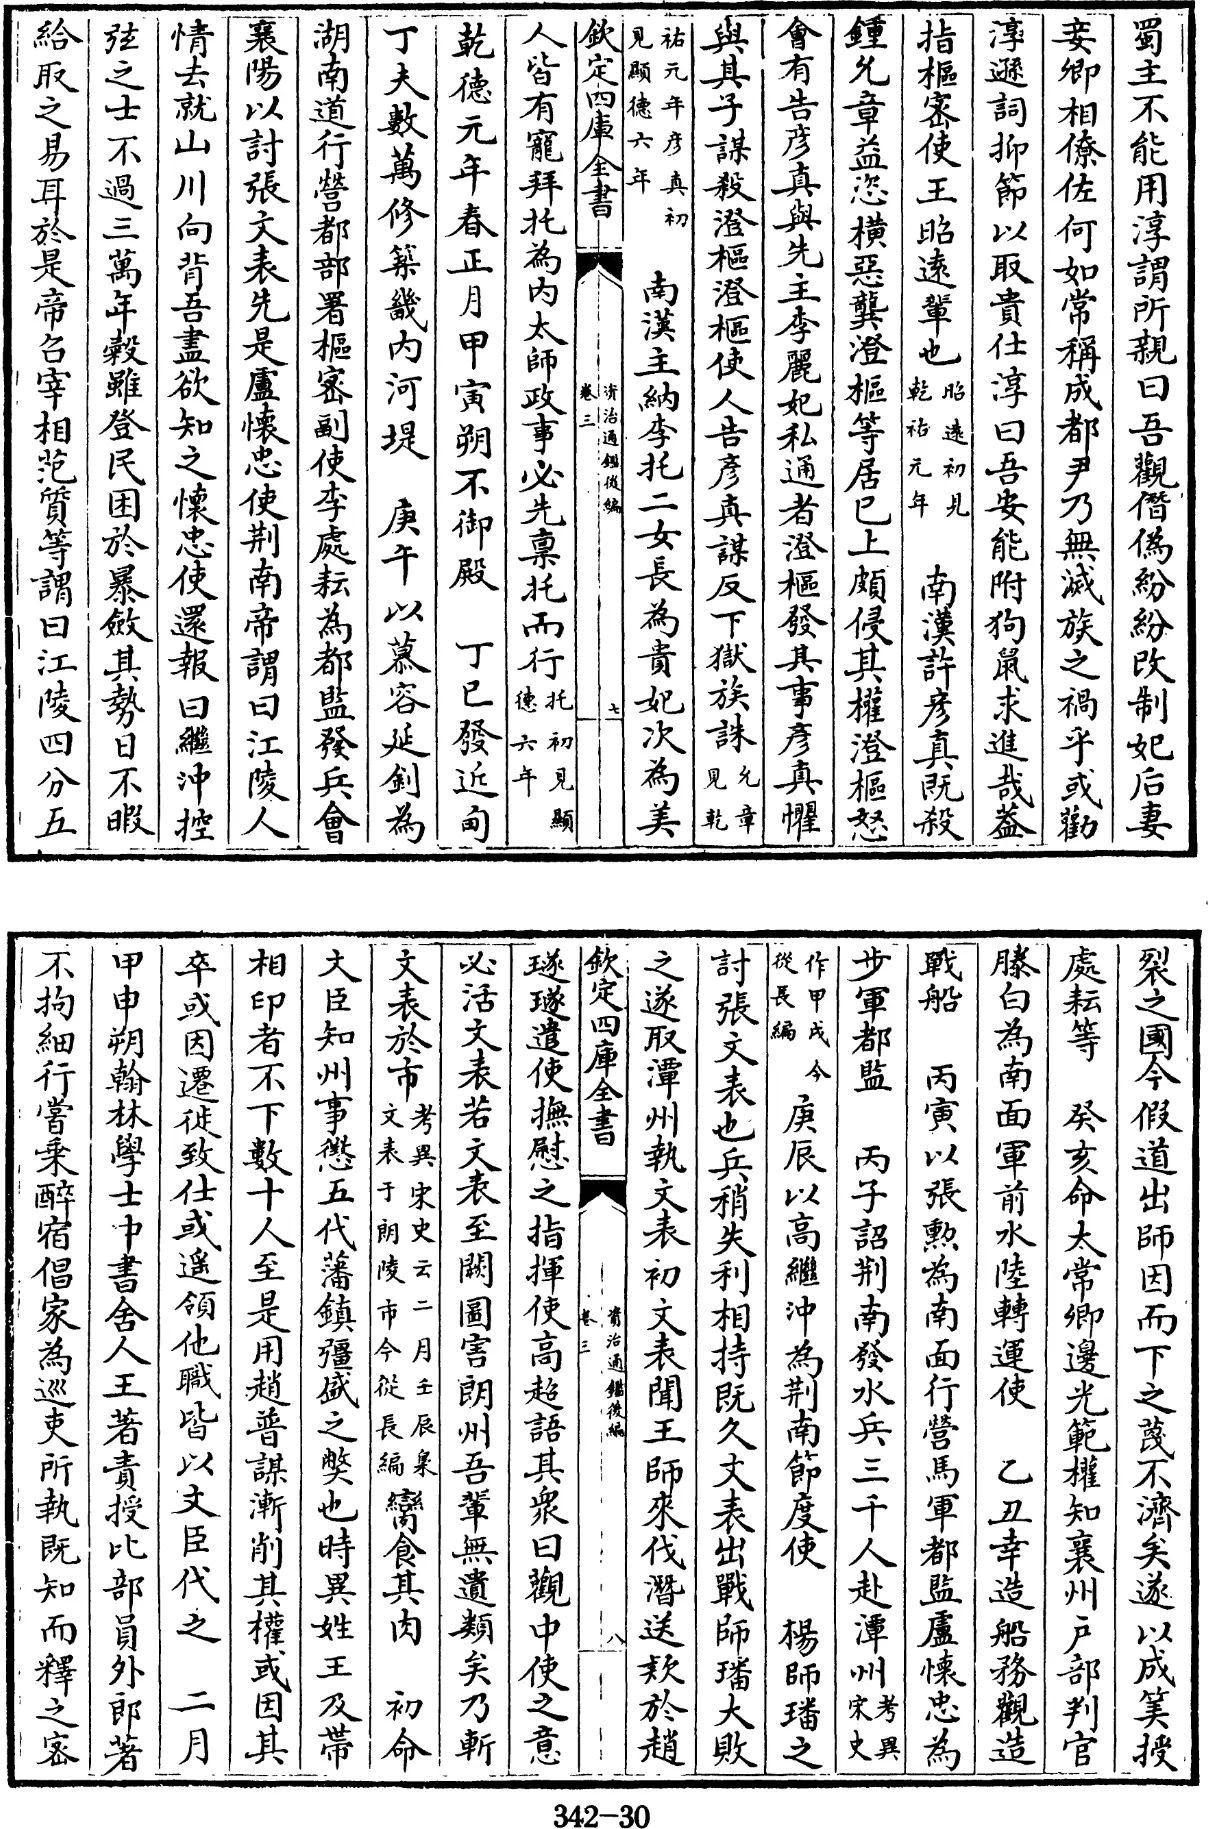 蜀主不能用淳謂所親曰吾觀僭偽紛紛改制妃后妻
妾卿相僚佐何如常稱成都尹乃無滅族之禍乎或勸
淳遜詞抑節以取貴仕淳曰吾安能附狗鼠求進哉葢
指樞密使王昭遠輩也昭遠初見乾祐元年 南漢許彥真既殺
鍾允章益恣橫惡龔澄樞等居己上頗侵其權澄樞怒
會有告彥真與先主李麗妃私通者澄樞發其事彥真懼
與其子謀殺澄樞澄樞使人告彥真謀反下獄族誅允章見乾
祐元年彥真初見顯德六年 南漢主納李托二女長為貴妃次為美
欽定四庫全書 資治通鑑後編 卷三 七
人皆有寵拜托為內太師政事必先稟托而行托初見顯德六年
乾德元年春正月甲寅朔不御殿 丁巳發近甸
丁夫數萬修築畿內河堤 庚午以慕容延釗為
湖南道行營都部署樞密副使李處耘為都監發兵會
襄陽以討張文表先是盧懷忠使荆南帝謂曰江陵人
情去就山川向背吾盡欲知之懷忠使還報曰繼沖控
弦之士不過三萬年穀雖登民困於暴斂其勢日不暇
給取之易耳於是帝召宰相范質等謂曰江陵四分五
裂之國今假道出師因而下之蔑不濟矣遂以成筭授
處耘等 癸亥命太常卿邊光範權知襄州戶部判官
滕白為南面軍前水陸轉運使 乙丑幸造船務觀造
戰船 丙寅以張勲為南面行營馬軍都監盧懷忠為
步軍都監 丙子詔荆南發水兵三千人赴潭州考異宋史
作甲戌今從長編 庚辰以高繼沖為荆南節度使 楊師璠之
討張文表也兵稍失利相持既久文表出戰師璠大敗
之遂取潭州執文表初文表聞王師來伐潛送欵於趙
欽定四庫全書 資治通鑑後編 卷三 八
璲璲遣使撫慰之指揮使高超語其衆曰觀中使之意
必活文表若文表至闕圖害朗州吾輩無遺類矣乃斬
文表於市考異宋史云二月壬辰梟文表于朗陵市今從長編臠食其肉 初命
大臣知州事懲五代藩鎮彊盛之獘也時異姓王及帶
相印者不下數十人至是用趙普謀漸削其權或因其
卒或因遷徙致仕或遥領他職皆以文臣代之 二月
甲申朔翰林學士中書舍人王著責授比部員外郎著
不拘細行嘗乘醉宿倡家為巡吏所執既知而釋之密
342-30